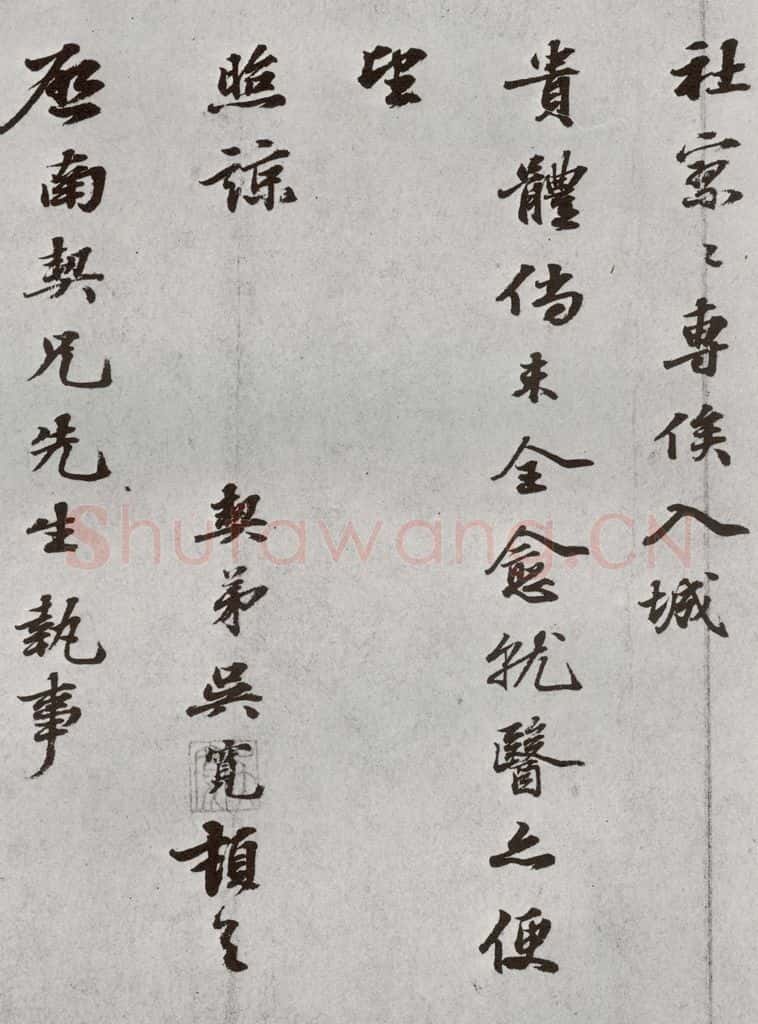 社寥〻專俟入城
貴體倘未全愈就醫亦便
望
照諒
契弟吳寬頓首
啓南契兄先生執事
Shufawang.CN